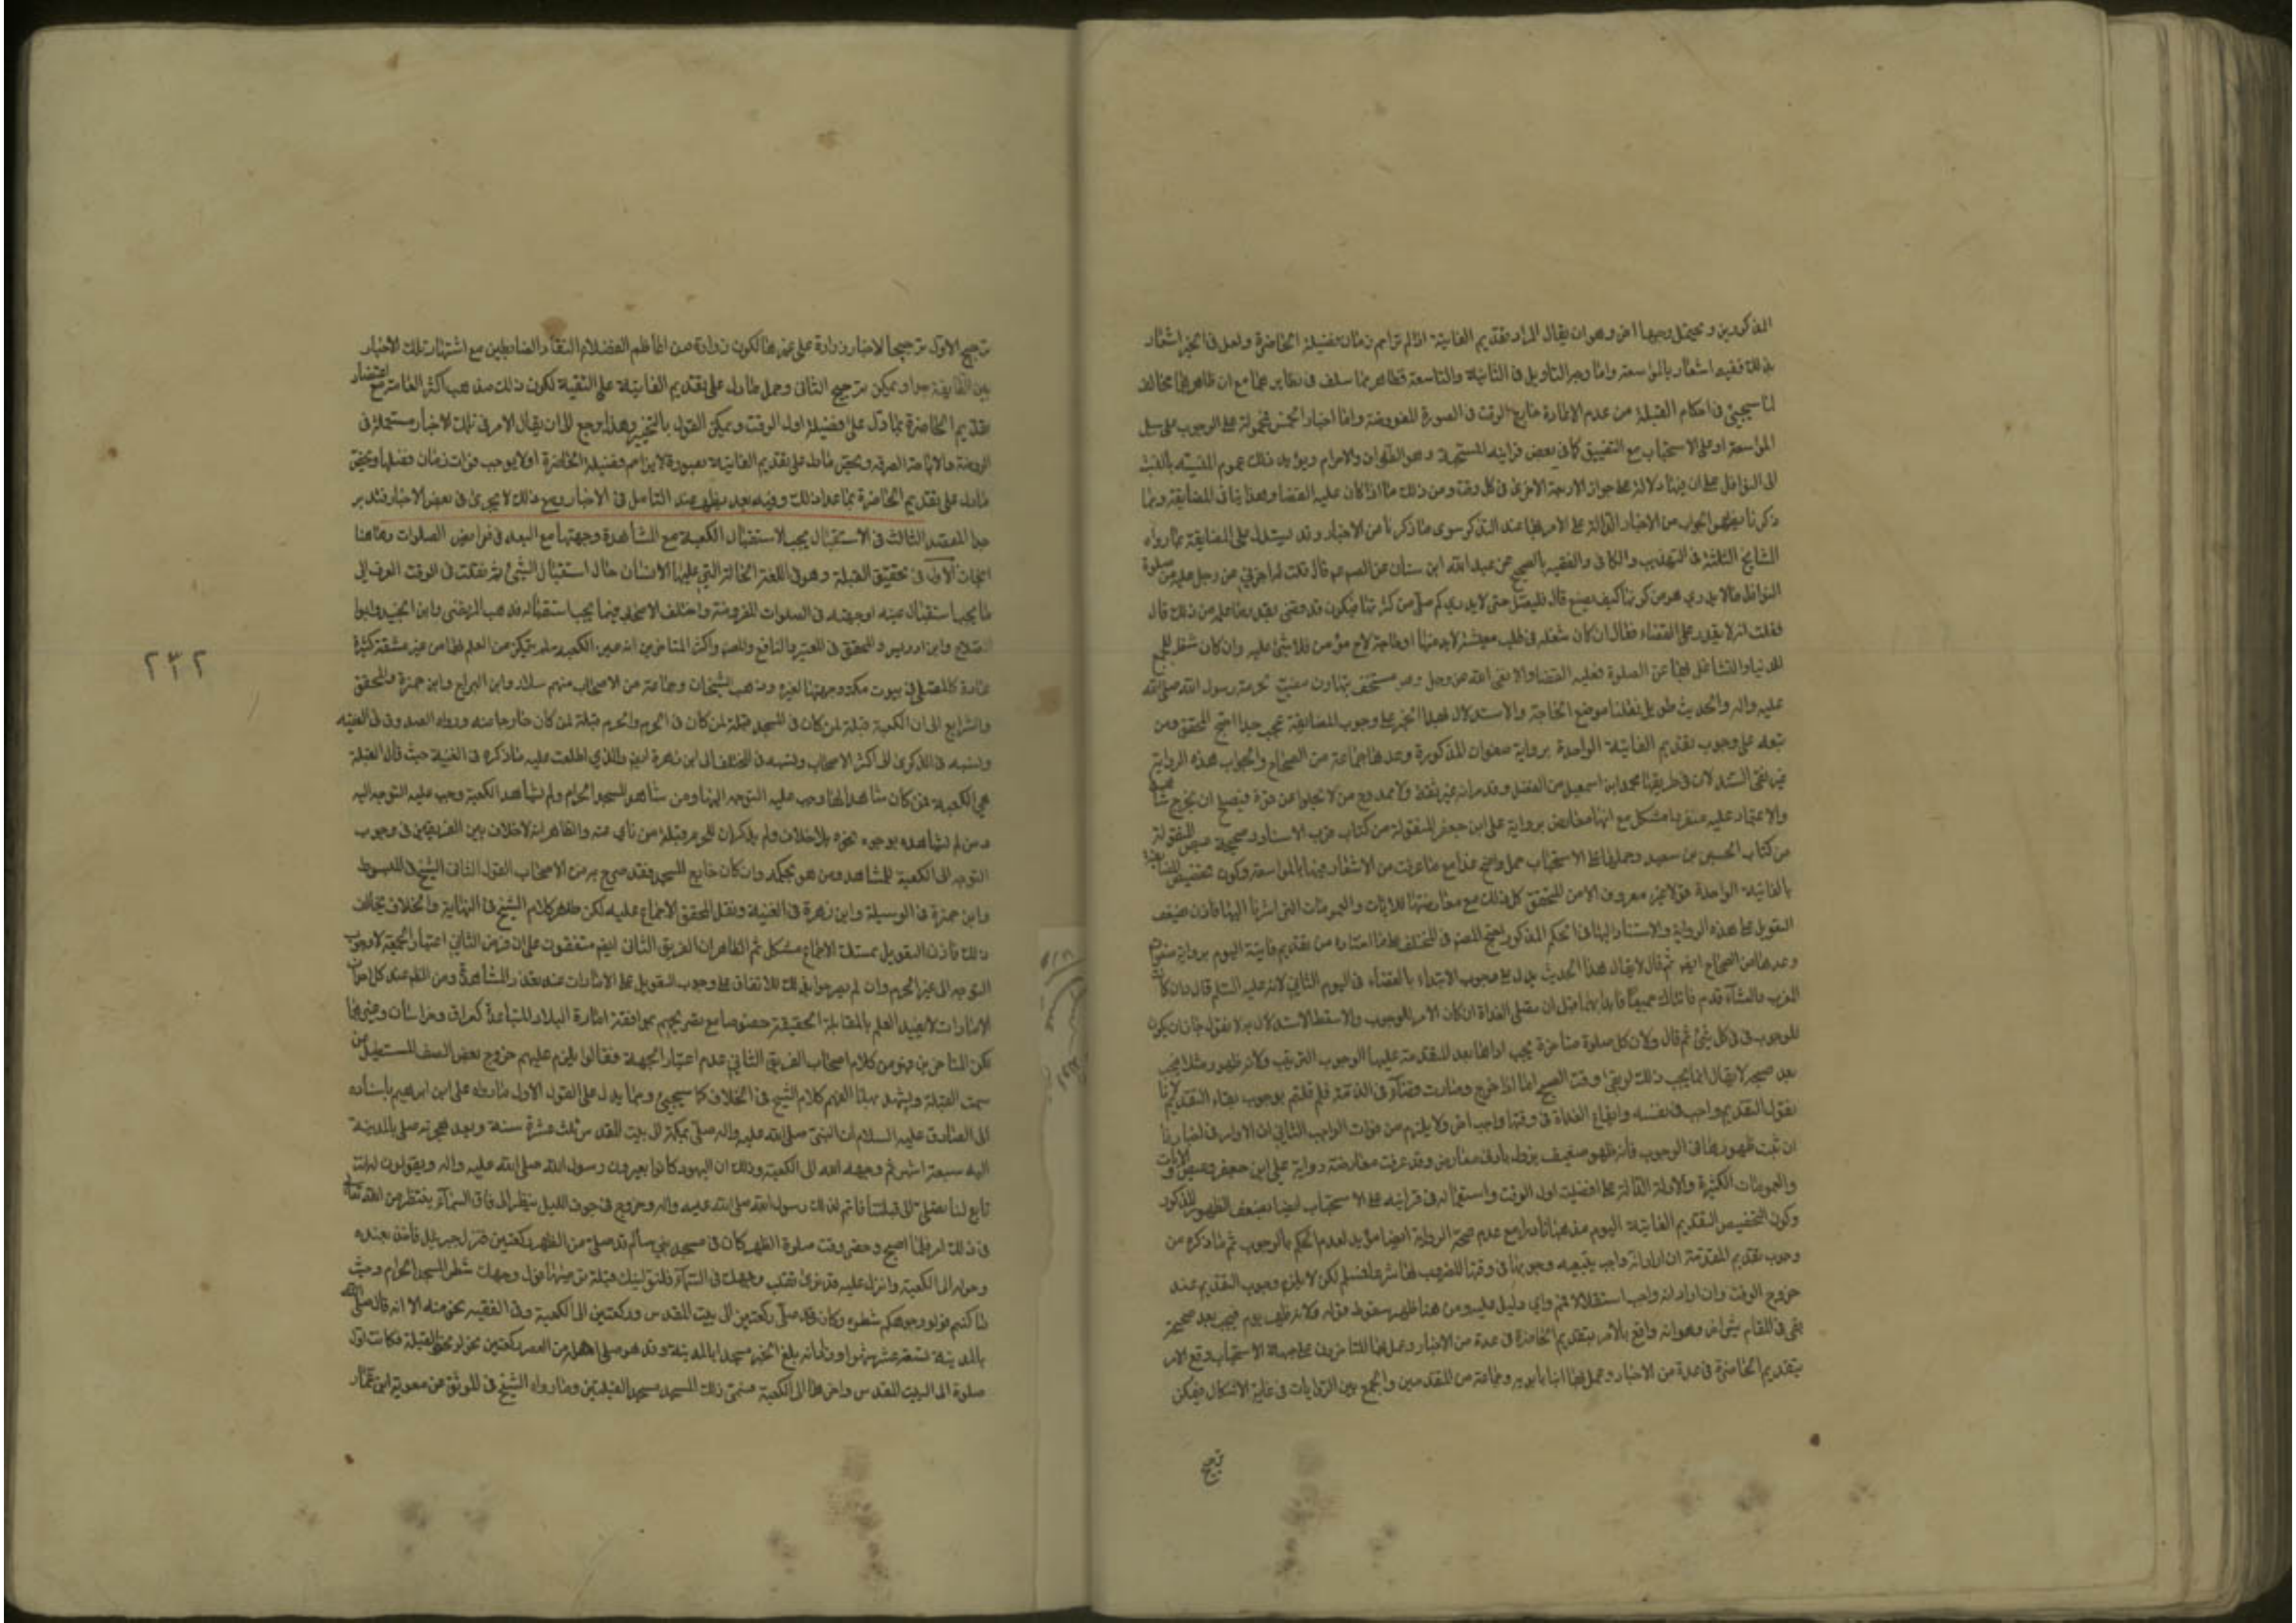 المذكورين ويحتمل وجها اخر وهو ان يقال المراد بتقديم الفايتة اذا لم تزاحم زمان فضيلة الحاضرة ولعل في الخبر اشعار
بذلك ففيه اشعار بالمواسعة واما وجه التاويل في الثانية والتاسعة فظاهر مما سلف في نظايرهما مع ان ظاهرهما مخالف
لما سيجيئ في احكام القبلة من عدم الاعادة خارج الوقت في الصورة المفروضة واما اخبار الخمس فمحمولة على الوجوب على سبيل
المواسعة او على الاستحباب مع التضييق كما في بعض قراينه المستحبة وهو الطهران والاحرام ويؤيد ذلك عموم
الى النوافل على ان فيها دلالة على جواز الاربعة الاخرى في كل وقت ومن ذلك ما اذا كان عليه القضا وهذا ينافي المضايقة وبما
ذكرنا يظهر الجواب عن الاخبار الدالة على الامر بها عند التذكر سوى ما ذكرنا من الاخبار وقد يستدل على المضايقة بما رواه
المشايخ الثلثة في التهذيب والكافي والفقيه بالصحيح عن عبد الله ابن سنان عن الصم عم قال قلت له اخبرني عن رجل عليه من صلوة
النوافل ما لا يدري هو من كثرتها كيف يصنع قال فليصل حتى لا يدري كم صلى من كثرتها فيكون قد قضى بقدر ما عليه من ذلك قال
فقلت له لا يقدر على القضاء فقال ان كان شغله في طلب معيشة لا بد منها او حاجة لاخ مؤمن فلا شئ عليه وان كان شغله لجمع
الدنيا والتشاغل بها عن الصلوة فعليه القضاء والا لقى الله عز وجل وهو مستخف متهاون مضيع لحرمة رسول الله صلى الله
عليه واله والحديث طويل نقلنا موضع الحاجة والاستدلال بهذا الخبر على وجوب المضايقة عجب جدا احتج المحقق ومن
تبعه على وجوب تقديم الفايتة الواحدة برواية صفوان المذكورة وعدها جماعة من الصحاح والجواب هذه الرواية
غير نقي السند لان في طريقها محمد ابن اسمعيل عن الفضل وقد مر انه غير ثقة ولا ممدوح من لا يخلو عن قوة فيصح ان يخرج شاهدا
والاعتماد عليه منفردا مشكل مع انها معارض برواية على ابن جعفر المنقولة من كتاب قرب الاسناد وصحيحة المنقولة
من كتاب الحسين بن سعيد وحملها على الاستحباب حمل واضح هذا مع ما عرفت من الاشعار فيها بالمواسعة وكون تخصيص
بالفايتة الواحدة قولا غير معروف الا من المحقق كل ذلك مع معارضتها للايات والعمومات التي اشرنا اليها فاذن ضعف
التعويل على هذه الرواية والاستناد اليها في الحكم المذكور احتج المصر في المختلف على ما اختاره من تقديم فايتة اليوم برواية صفوان
وعدها من الصحاح ايضا ثم قال لا يقال هذا الحديث يدل على وجوب الابتداء بالقضاء في اليوم الثاني لانه عليه السلم قال وان كانت
المغرب والعشاء قدم فاتتاك جميعا فابدا بهما قبل ان تصلى الغداة ان كان الامر للوجوب والا سقط الاستدلال به لا نقول جاز ان يكون
للوجوب في كل شئ ثم قال ولان كل صلوة متاخرة يجب اداؤها بعد المتقدمة عليها الوجوب الترتيب ولانه ظهر ومثلك فيجب
بعد صبحه لا يقال انما يجب ذلك لو بقي وقت الصبح اما اذا خرج وصارت قضاء في الذمة فلم قلتم بوجوب بقاء التقديم لانا
نقول التقديم واجب في نفسه وايقاع الغداة في وقتها واجب اخر ولا يلزم من فوات الواجب الثاني ان الاوامر في اخبارنا
ان ثبت ظهورها في الوجوب فانه ظهور ضعيف يزول بادنى معارض وقد عرفت معارضة رواية على ابن جعفر وعموم الايات
والعمومات الكثيرة والادلة الدالة على افضليت اول الوقت واستعماله في قراينه على الاستحباب ايضا يضعف الظهور المذكور
وكون التخصيص بتقديم الفايتة اليوم مذهبا نادرا مع عدم صحة الرواية ايضا مؤيد لعدم الحكم بالوجوب ثم ما ذكره من
وجوب تقديم المقدمة ان اراد انه واجب بتبعية وجوبها في وقتها المضروب لها شرعا فمسلم لكن لا يلزم وجوب التقديم عند
خروج الوقت وان اراد انه واجب استقلالا فمم واي دليل عليه ومن هنا ظهر سقوط قوله ولانه ظهر يوم فيجب بعد صحيحة
بقي في المقام شئ اخر وهو انه واقع بالامر بتقديم الحاضرة في عدة من الاخبار وحملها المتاخرون على جهة الاستحباب وقع الامر
بتقديم الحاضرة في عدة من الاخبار وعمل بها ابنا بابويه وجماعة من المتقدمين والجمع بين الروايات في غاية الاشكال فيمكن
ترجيح
ترجيح الاول ترجيحا لاخبار زرارة على غيرها لكون زرارة من اعاظم الفضلاء الثقاة والضابطين مع اشتهار تلك الاخبار
بين الطايفة جدا ويمكن ترجيح الثاني وحمل ما دل على تقديم الفايتة على التقية لكون ذلك مذهب اكثر العامة مع اعتضاد
تقديم الحاضرة بما دل على فضيلة اول الوقت ويمكن القول بالتخيير وهذا يرجع الى ان يقال الامر في تلك الاخبار مستعملة في
الرخصة والاباحة الصرفة ويختص ما دل على تقديم الفايتة بصورة لا يزاحم فضيلة الحاضرة او لا يوجب فوات زمان فضلها ويختص
ما دل على تقديم الحاضرة بما عدا ذلك وفيه بعد يظهر عند التامل في الاخبار ومع ذلك لا يجري في بعض الاخبار فتدبر
جدا المقصد الثالث في الاستقبال يجب الاستقبال الكعبة مع المشاهدة وجهتها مع البعد في فرايض الصلوات وهاهنا
ابحاث الاول في تحقيق القبلة وهو في اللغة الحالة التي عليها الانسان حال استقبال الشئ ثم نقلت في الوقت العرف الى
ما يجب استقبال عينه او جهته في الصلوات المفروضة واختلف الاصحاب فيما يجب استقباله فذهب المرتضى وابن الجنيد وابوا
الصلاح وابن ادريس والمحقق في المعتبر والنافع والمصر واكثر المتاخرين انه عين الكعبة لمن يتمكن من العلم بها من غير مشقة كثيرة
عادة كالمصلى في بيوت مكة وجهتها لغيره وذهب الشيخان وجماعة من الاصحاب منهم سلار وابن البراج وابن حمزة والمحقق
والشرايع الى ان الكعبة قبلة لمن كان في المسجد قبلة لمن كان في الحرم والحرم قبلة لمن كان خارجا عنه ورواه الصدوق في الفقيه
ونسبه في الذكرى الى اكثر الاصحاب ونسبه في المختلف الى ابن زهرة ايض والذي اطلعت عليه ما ذكره في الغنية حيث قال القبلة
هي الكعبة فمن كان شاهدا لها وجب عليه التوجه اليها ومن شاهد المسجد الحرام ولم يشاهد الكعبة وجب عليه التوجه اليه
ومن لم يشاهده يوجه نحوه بلا خلاف ولم يذكر ان الحرم قبلة من ناى عنه والظاهر انه لا خلاف بين الفريقين في وجوب
التوجه الى الكعبة للمشاهد ومن هو بحكمه وان كان خارج المسجد فقد صرح به من الاصحاب القول الثاني الشيخ في المبسوط
وابن حمزة في الوسيلة وابن زهرة في الغنية ونقل المحقق الاجماع عليه لكن ظاهر كلام الشيخ في النهاية والخلاف يخالف
ذلك فاذن التعويل بمسئلة الاجماع مشكل ثم الظاهر ان الفريق الثاني ايض متفقون على ان فرض الثاني اعتبار الجهة لا وجوب
التوجه الى عين الحرم وان لم يصرحوا بذلك للاتفاق على وجوب التعويل على الامارات عند تعذر المشاهدة ومن المعلوم عند كل احد ان
الامارات لا يفيد العلم بالمقابلة الحقيقية خصوصا مع تصريحهم بموافقة امارة البلاد المتباعدة كعراق وخراسان وغيرها
لكن المتاخرين فهموا من كلام اصحاب الفريق الثاني عدم اعتبار الجهة فقالوا يلزم عليهم خروج بعض الصف المستطيل من
سمت القبلة ويشهد بهذا الفهم كلام الشيخ في الخلاف كما سيجيئ ومما يدل على القول الاول ما رواه على ابن ابرهيم باسناده
الى الصادق عليه السلام ان النبي صلى الله عليه واله صلى بمكة الى بيت المقدس ثلث عشرة سنة وبعد هجرته صلى بالمدينة
اليه سبعة اشهر ثم وجهه الله الى الكعبة وذلك ان اليهود كانوا يعيرون رسول الله صلى الله عليه واله ويقولون له انت
تابع لنا تصلى الى قبلتنا فاغتم لذلك رسول الله صلى الله عليه واله وخرج في جوف الليل ينظر الى افاق السماء ينتظر من الله تعالى
في ذلك امرا فلما اصبح وحضر وقت صلوة الظهر كان في مسجد بني سالم قد صلى من الظهر ركعتين فنزل جبرئيل فاخذ بعضده
وحوله الى الكعبة وانزل عليه قد نرى تقلب وجهك في السماء فلنولينك قبلة ترضيها فول وجهك شطر المسجد الحرام وحيث
ما كنتم فولوا وجوهكم شطره وكان قد صلى ركعتين الى بيت المقدس وركعتين الى الكعبة وفي الفقيه نحو منه الا انه قال صلى الله
بالمدينة تسعة عشر شهرا وزاد انه بلغ الخبر مسجدا بالمدينة وقد هو صلى اهله من العصر ركعتين فحولوا نحو القبلة فكانت اول
صلوة الى البيت المقدس واخرها الى الكعبة فسمى ذلك المسجد مسجد القبلتين وما رواه الشيخ في الموثق عن معوية ابن عمار
٢٣٢